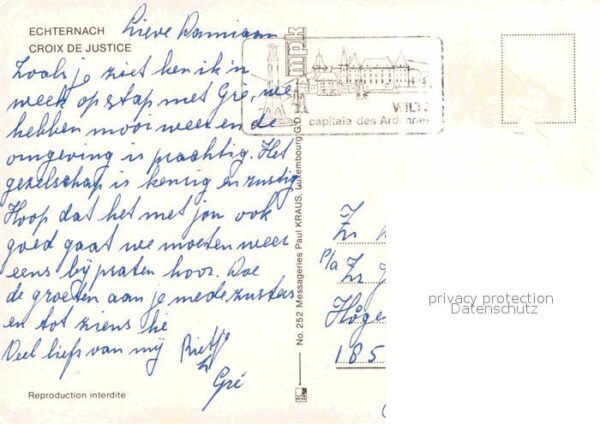 ECHTERNACH
CROIX DE JUSTICE
Lieve Damiaan
Zoals je ziet ben ik 'n
week op stap met Gré, we
hebben mooi weer en de
omgeving is prachtig. Het
gezelschap is keurig en rustig
Hoop dat het met jou ook
goed gaat we moeten weer
eens bijpraten hoor. Doe
de groeten aan je medezusters
en tot ziens hè
Veel liefs van mij Rietje
Gré
Reproduction interdite
No. 252 Messageries Paul KRAUS, Luxembourg G.D.
mpk
WILTZ
capitale des Ardennes
Zr
P/a Zr
Höge
185
privacy protection
Datenschutz